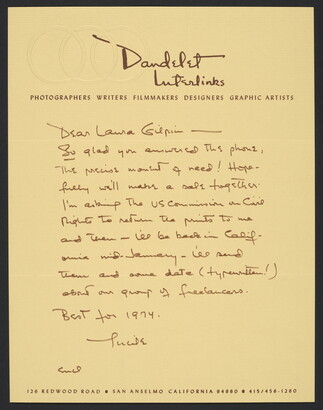 Dandelet
Interlinks
PHOTOGRAPHERS WRITERS FILMMAKERS DESIGNERS GRAPHIC ARTISTS
Dear Laura Gilpin —
So glad you answered the phone,
the precise moment of need! Hope-
fully we'll make a sale together.
I'm asking the US Commission on Civil
Rights to return the prints to me
and then – I'll be back in Calif-
ornia mid-January – I'll send
them and some data (typewritten!)
about our group of freelancers.
Best for 1974.
Lucile
encl
126 REDWOOD ROAD • SAN ANSELMO CALIFORNIA 94960 • 415/456-1260